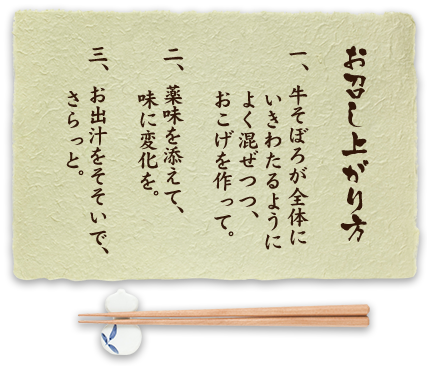 お召し上がり方
一、牛そぼろが全体に
いきわたるように
よく混ぜつつ、
おこげを作って。
二、薬味を添えて、
味に変化を。
三、お出汁をそそいで、
さらっと。